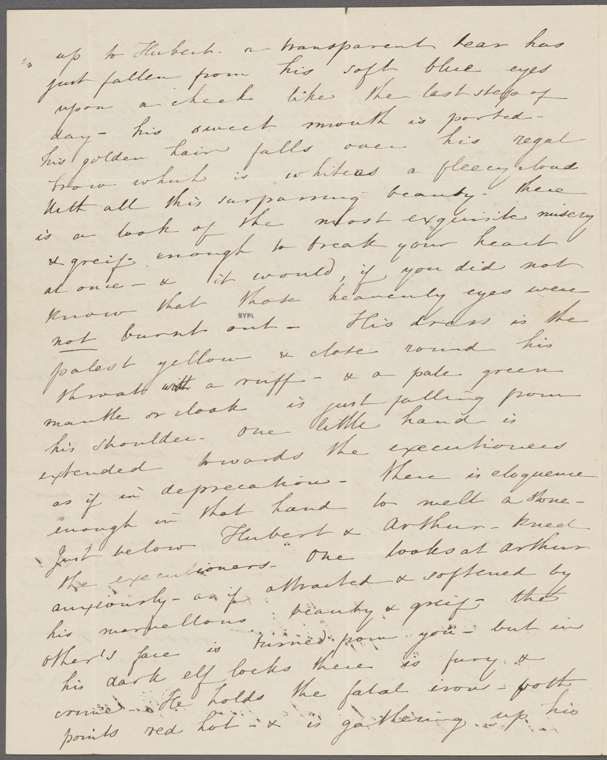 up to Hubert. a transparent tear has
just fallen from his soft blue eyes
upon a cheek like the last steps of
day - his sweet mouth is parted -
his golden hair falls over his regal
brow which is white as a fleecy cloud
With all this surpassing beauty - there
is a look of the most exquisite misery
& greif - enough to break your heart
at once - & it would, if you did not
know that those heavenly eyes were
not burnt out - His dress is the
NYPL
palest yellow & close round his
throat with a ruff - & a pale green
mantle or cloak is just falling from
his shoulder. One little hand is
extended towards the executioners
as if in deprecation - There is eloquence
enough in that hand to melt a stone -
Just below Hubert & Arthur - kneel
the executioners - One looks at Arthur
anxiously - as if attracted & softened by
his marvellous beauty & greif - the
other's face is turned from you - but in
his dark elf locks there is fury &
crime - He holds the fatal iron - both
points red hot - & is gathering up his